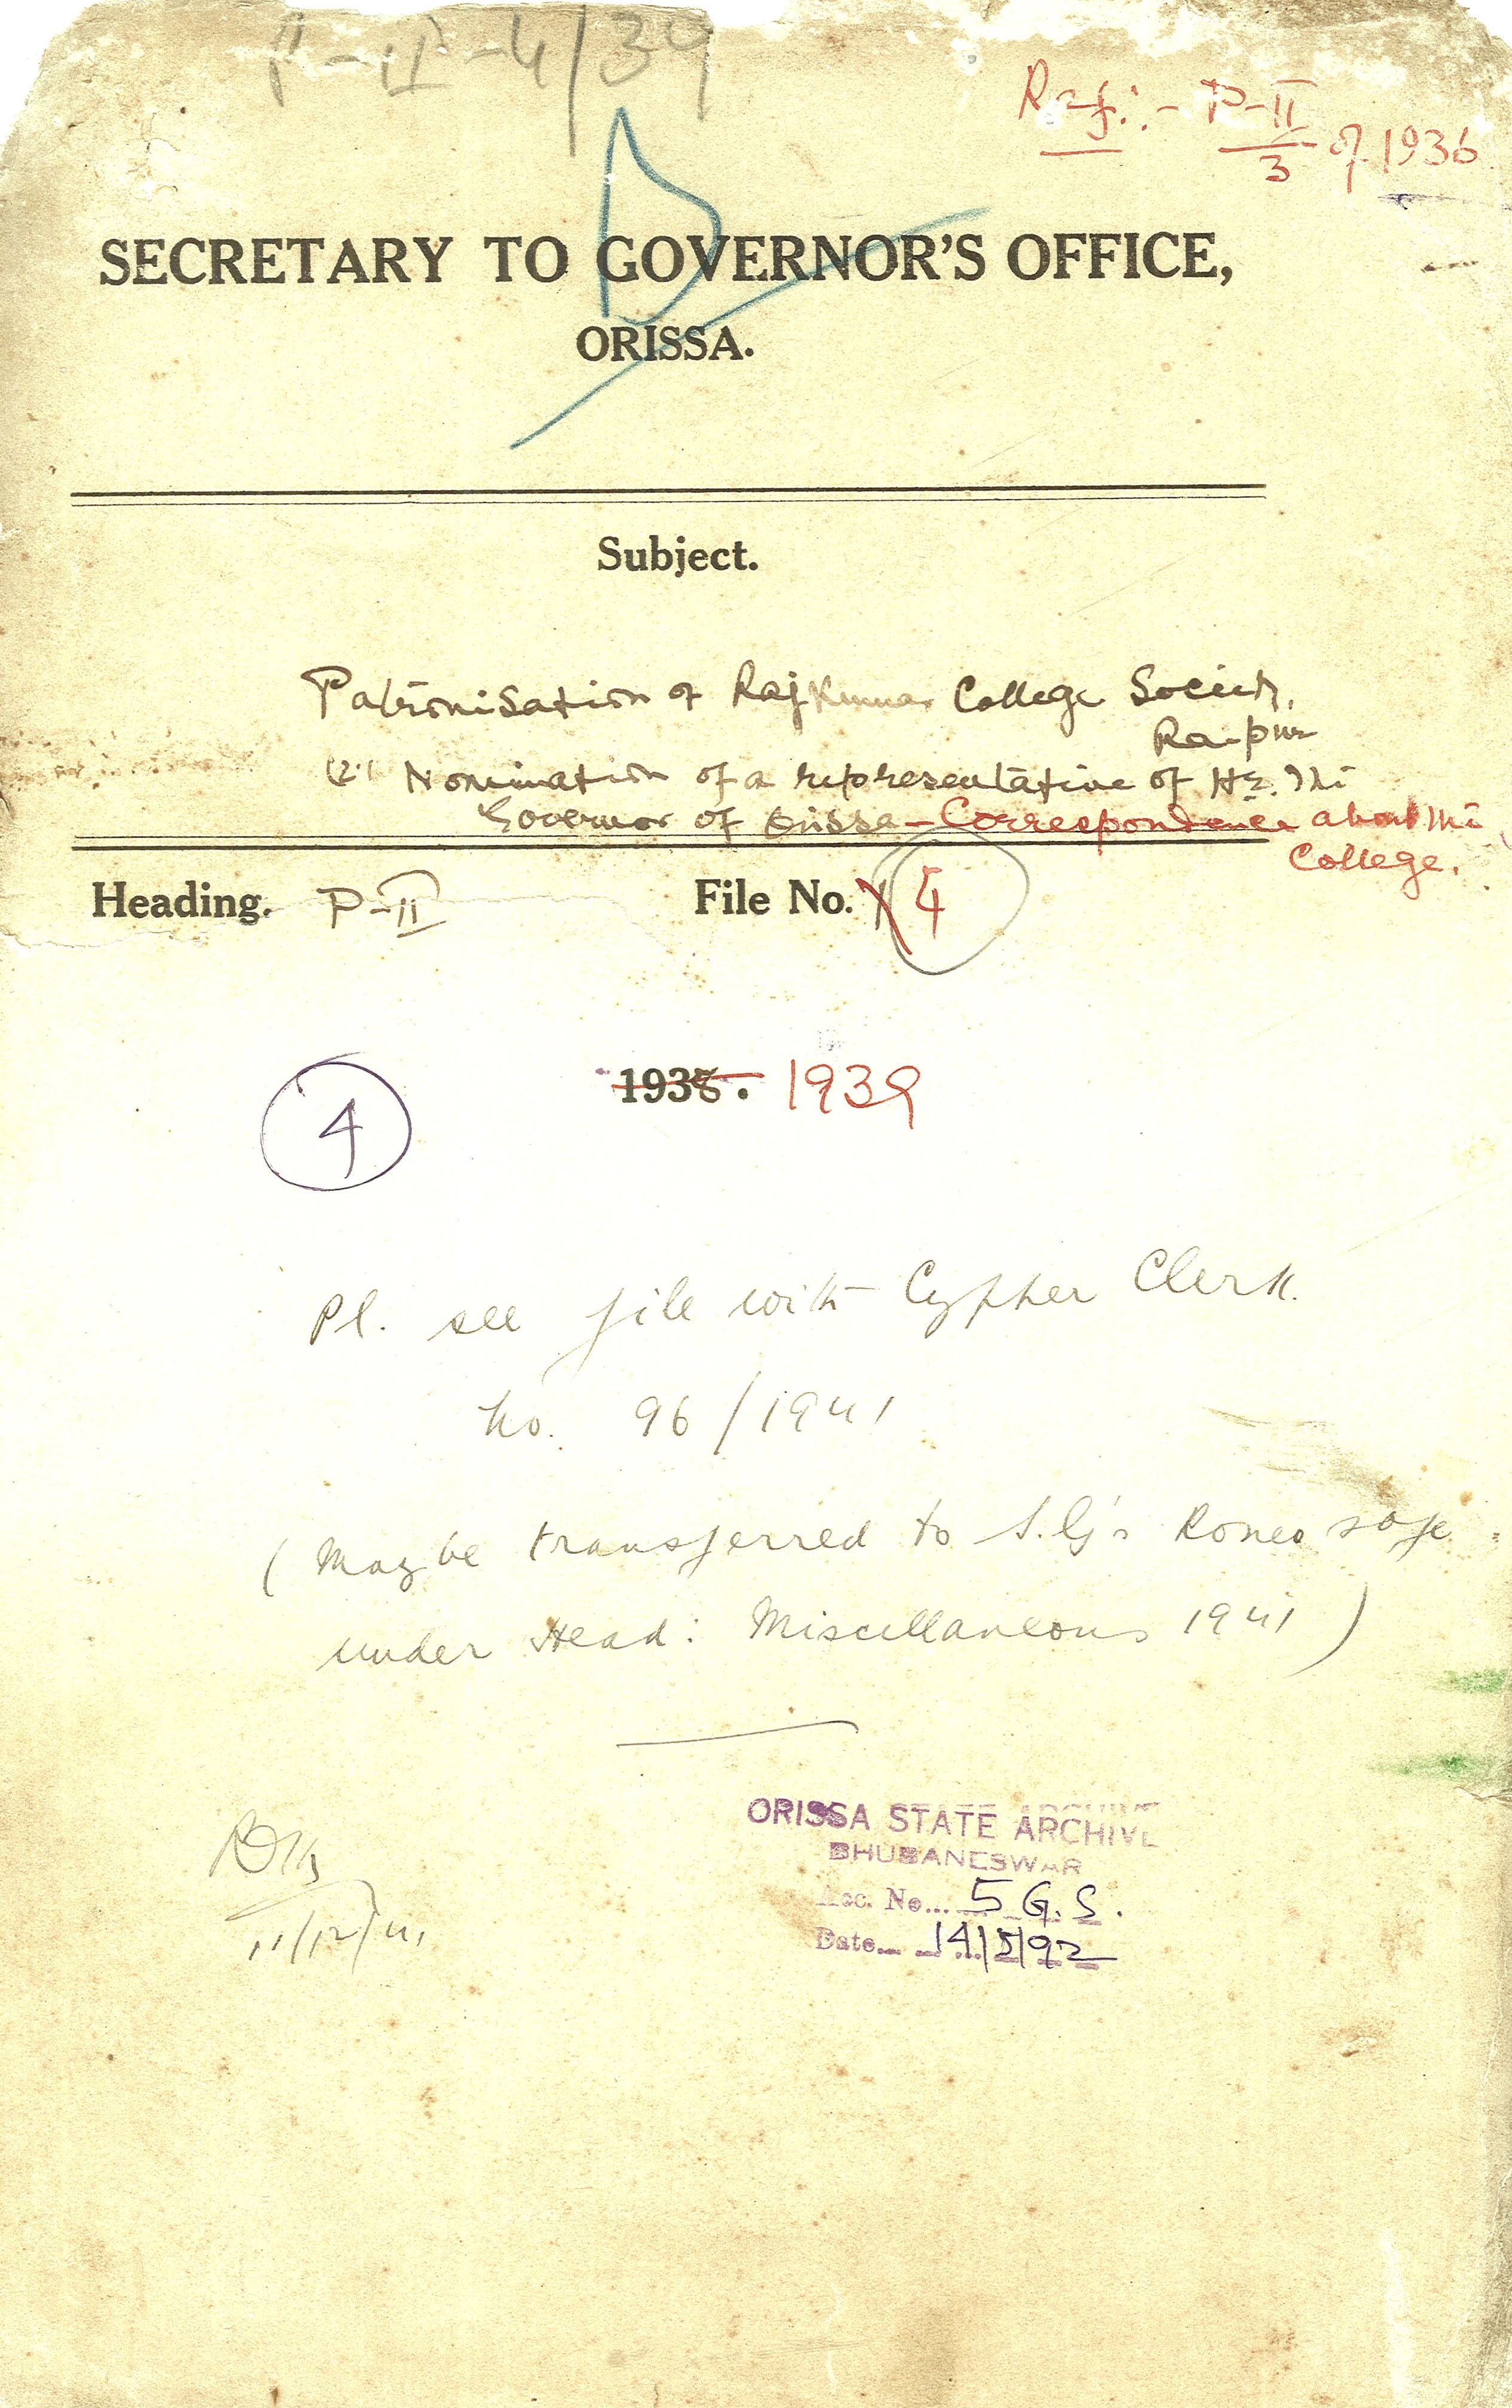 P-II-4/39
Ref:- P-II/3 of 1936
D
SECRETARY TO GOVERNOR'S OFFICE,
ORISSA.
Subject.
Patronisation of Rajkumar College Society,
Raipur
(2) Nomination of a representative of H.E. The
Governor of Orissa - Correspondence about the
College.
Heading. P-II File No. 4
1938. 1939
4
Pl. see file with Cypher Clerk.
No. 96/1941
(May be transferred to S.G's Roneo safe
under Head: Miscellaneous 1941)
11/12/41
ORISSA STATE ARCHIVE
BHUBANESWAR
Acc. No... 5 G.S.
Date... 14/5/92